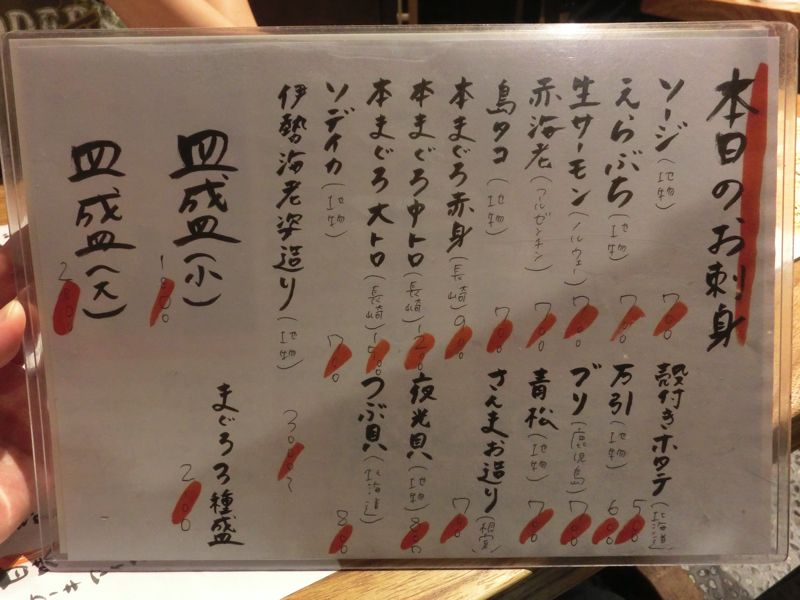 本日のお刺身
ソージ(地物) 700
えらぶち(地物) 700
生サーモン(ノルウェー) 700
赤海老(アルゼンチン) 700
島タコ(地物) 700
本まぐろ赤身(長崎) 900
本まぐろ中トロ(長崎) 1200
本まぐろ大トロ(長崎)
ソデイカ(地物) 700
伊勢海老姿造り(地物) 3000〜
殻付きホタテ(北海道) 500
万引(地物) 600
ブリ(鹿児島) 700
青松(地物) 700
さんまお造り(根室) 700
夜光貝(地物) 800
つぶ貝(北海道) 800
まぐろ3種盛
皿盛(小)
皿盛(大)